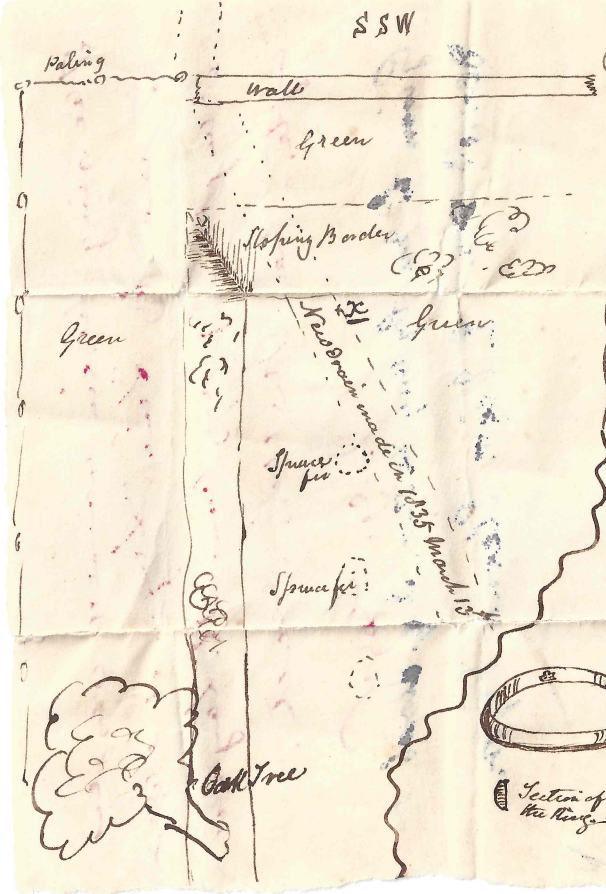 SSW
Paling
Wall
Green
Sloping Border
Green
Green
New Drain made in 1835 March 13th
Spruce
fir
Spruce fir
Oak Tree
Section of
the Ring